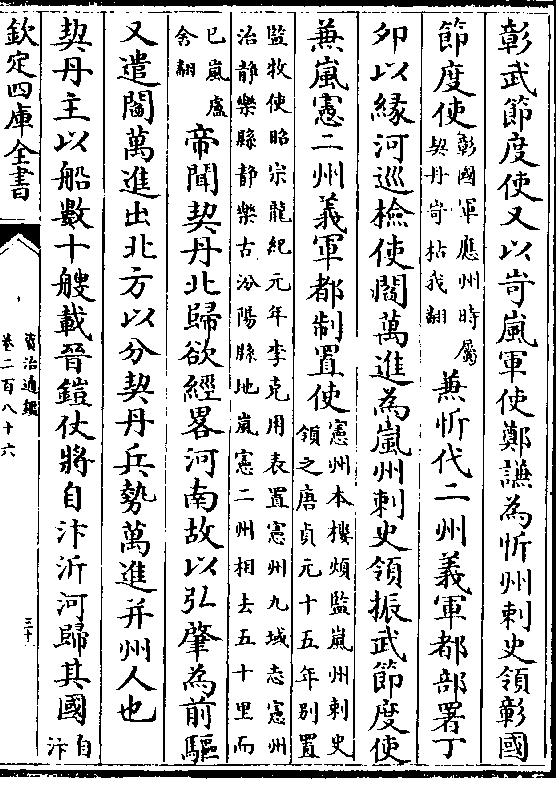 彰武節度使又以岢嵐軍使鄭謙為忻州刺史領彰國
節度使
彰國軍應州時屬
契丹岢枯我翻
兼忻代二州義軍都部署丁
卯以緣河巡檢使閻萬進為嵐州刺史領振武節度使
兼嵐憲二州義軍都制置使
憲州本樓煩監嵐州刺史
領之唐貞元十五年别置
監牧使昭宗龍紀元年李克用表置憲州九域志憲州
治静樂縣静樂古汾陽縣地嵐憲二州相去五十里而
已嵐盧
含翻
帝聞契丹北歸欲經畧河南故以弘肇為前驅
又遣閻萬進出北方以分契丹兵勢萬進并州人也
契丹主以船數十艘載晉鎧仗將自汴泝河歸其國
自
汴
欽定四庫全書
資治通鑑
卷二百八十六
三十